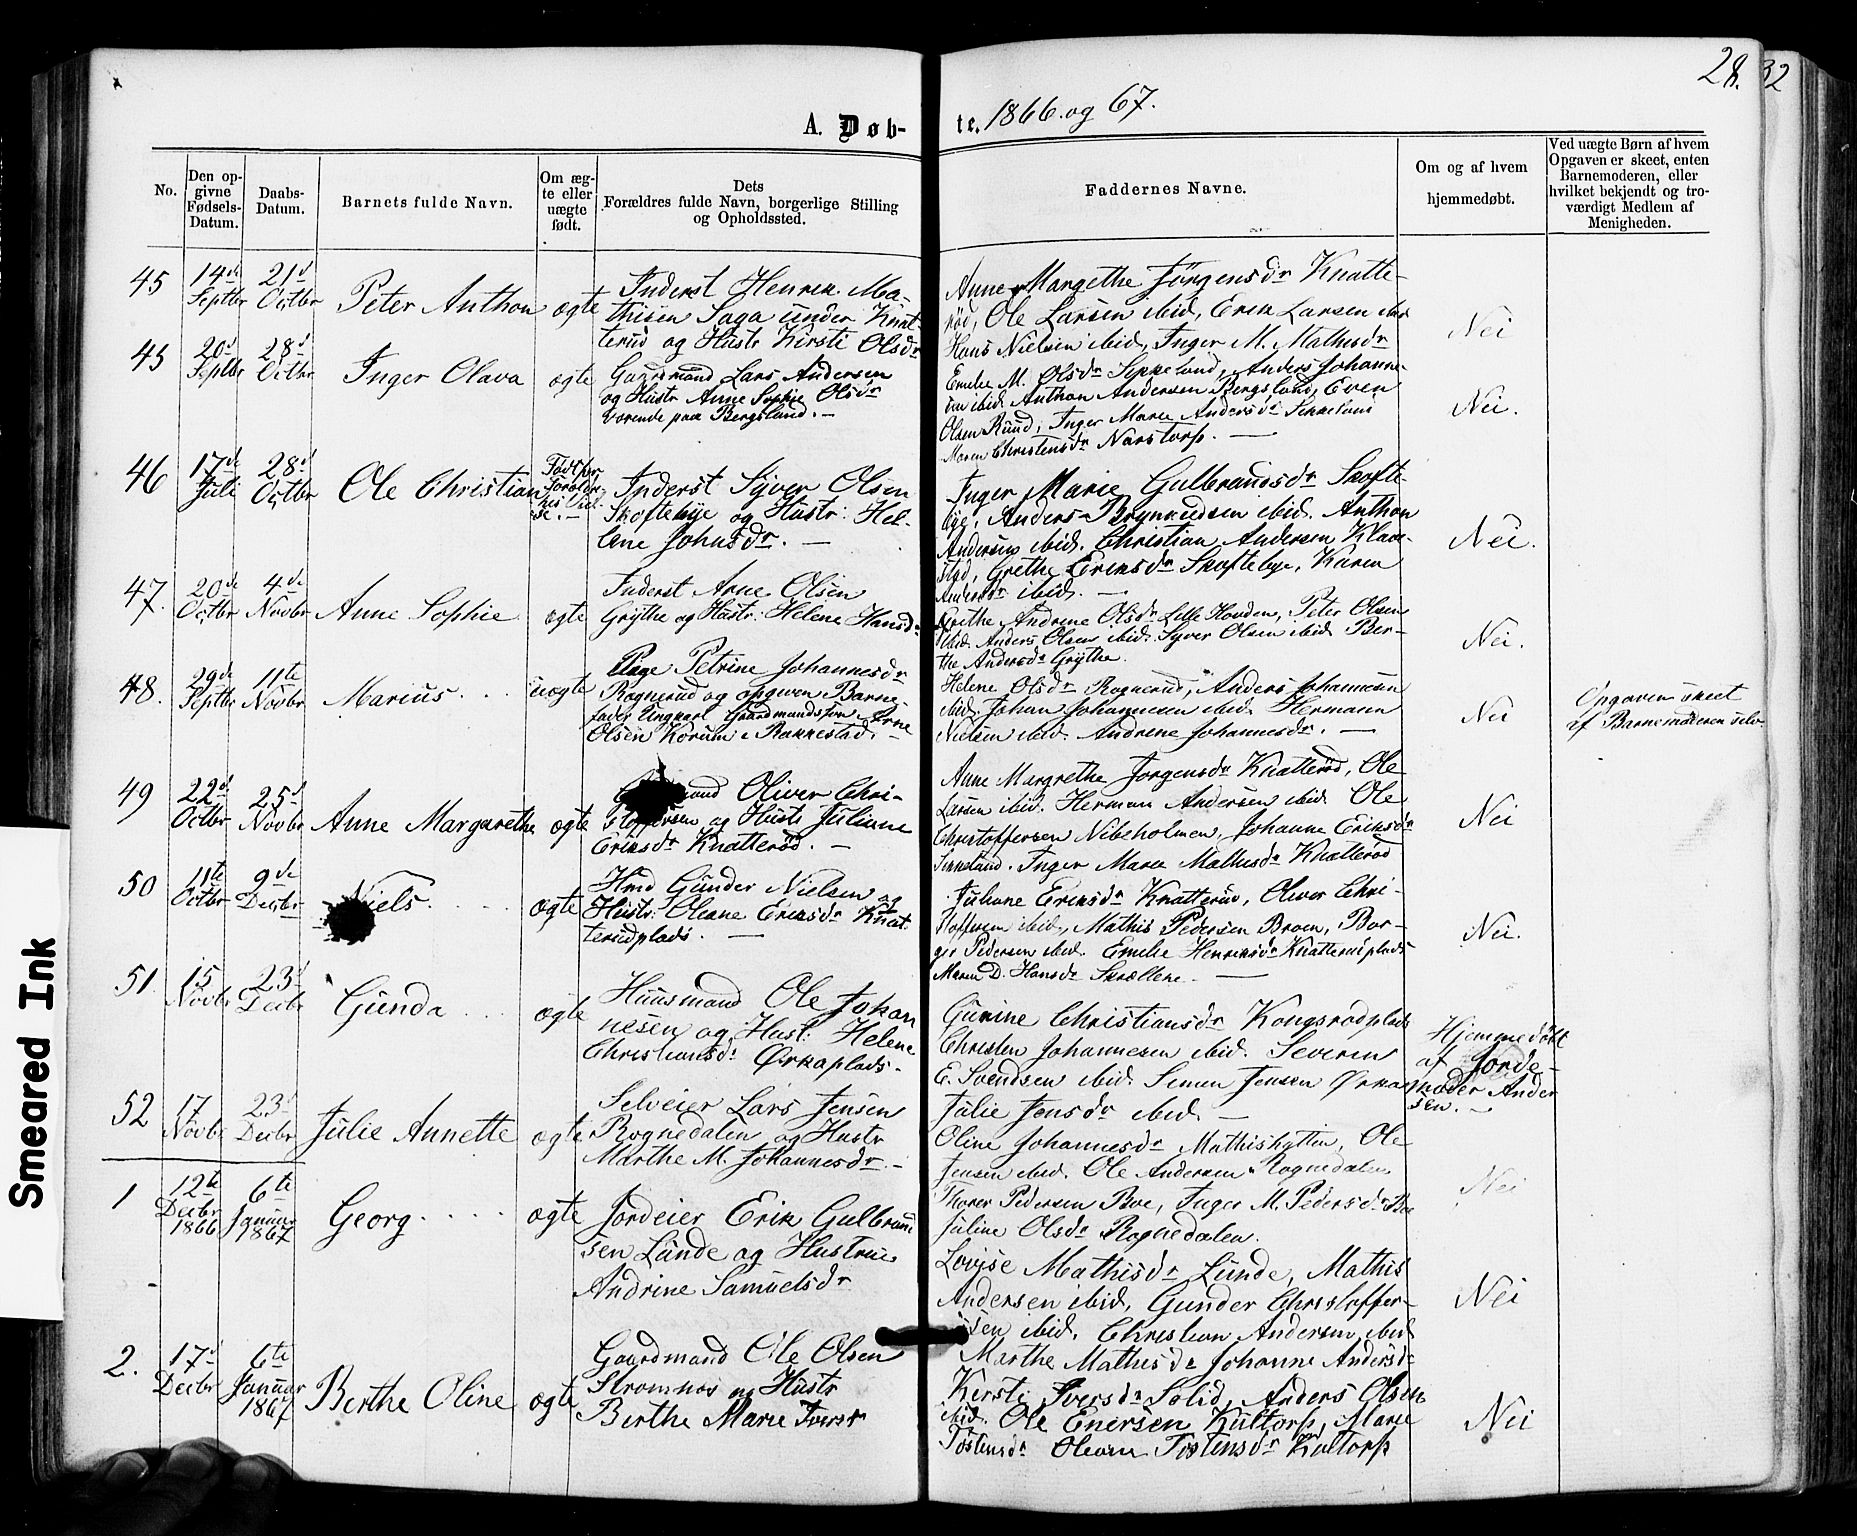 28.
32
A. Døb-
te. 1866 og 67.
No.
Den op-
givne
Fødsels-
Datum.
Daabs-
Datum.
Barnets fulde Navn.
Om æg-
te eller
uægte
født.
Dets
Forældres fulde Navn, borgerlige Stilling
og Opholdssted.
Faddernes Navne.
Om og af hvem
hjemmedøbt.
Ved uægte Børn af hvem
Opgaven er skeet, enten
Barnemoderen, eller
hvilket bekjendt og tro-
værdigt Medlem af
Menigheden.
45
14de
Septbr
21d
Octbr
Peter Anthon
ægte
Inderst Henrik Ma-
thisen Saga under Knat-
terud og Hustr Kirsti Olsdr
Anne Margethe Jörgensdr Knatte-
röd, Ole Larsen ibid, Erik Larsen ibid
Hans Nielsen ibid, Inger M. Mathisdr
Nei
45
20d
Septbr
28d
Octbr
Inger Olava
ægte
Gaardmand Lars Andersen
og Hustr Anne Sophie Olsdr
værende paa Bergsland. -
Emilie M. Olsdr Sikkeland, Anders Johanne-
sen ibid Anthon Andersen Bergsland, Even
Olsen Rund, Inger Marie Andersdr Sikkeland
Maren Christensdr Narstorp. -
Nei.
46
17de
Juli
28d
Octbr
Ole Christian
Født før
Foræld-
res Viel-
se. -
Inderst Syver Olsen
Skoftebye og Hustr: Hel-
ene Johnsdr. -
Inger Marie Gulbrandsdr Skofte-
bye, Anders Brynildsen ibid. Anthon
Andersen ibid. Christian Andersen Klave-
stad, Grethe Eriksdr Skoftebye, Karen
Andersdr ibid. -
Nei.
47.
20de
Octbr
4de
Novbr
Anne Sophie
ægte
Inderst Arne Olsen
Grÿthe og Hustr: Helene Hansdr
Grethe Andrine Olsdr Lille Hovden, Peter Olsen
ibid. Anders Olsen ibid. Syver Olsen ibid Ber-
the Andersdr Grÿthe.
Nei.
48.
29de
Septbr
11te
Novbr
Marius
uægte
Pige Petrine Johannesdr
Rognerud og opgiven Barne-
fader Ungkarl Gaardmandssøn Arne
Olsen Korum i Rakkestad. -
Helene Olsdr Rognerud, Anders Johannesen
ibid. Johan Johannesen ibid. Hermann
Nielsen ibid. Andrene Johannesdr. -
Nei
Opgaven skeet
af Barnemoderen selv
49
22d
Octbr
25d
Novbr
Anne Margarethe
ægte
mand Oliver Chri-
stoffersen og Hustr Juliane
Eriksdr Knatteröd. -
Anne Margrethe Jorgensdr Knatteröd, Ole
Larsen ibid. Herman Andersen ibid. Ole
Christoffersen Nibeholmen, Johanne Eriksdr
Sikkeland. Inger Marie Mathisdr Knatteröd
Nei
50
11te
Octbr
9de
Decbr
Niels.
ægte
Hmd Gunder Nielsen og
Hustr: Oleane Eriksdr Knat-
terudplads. -
Juliane Eriksdr Knatterud, Oliver Chri-
stoffersen ibid, Mathis Pedersen Braen, Bor-
ger Pedersen ibid. Emelie Henriksdr Knatterudplads
Maren D. Hansdr Skrællene -
Nei.
51.
15
Novbr
23d
Decbr
Gunda
ægte
Huusmand Ole Johan-
nesen og Hust: Helene
Christiansdr Ørkaplads.
Gurine Christiansdr Kongsrodplads
Christen Johannesen ibid. Severin
E. Svendsen ibid. Simen Jensen Ørka
Julie Jensdr ibid. -
Hjemmedøbt
af Jorde-
moder Ander
sen. -
52
17
Novbr
23d
Decbr
Julie Annette
ægte
Selveier Lars Jensen
Rognedalen og Hustr
Marthe M. Johannesdr. -
Oline Johannesdr Mathishytten, Ole
Jensen ibid. Ole Andersen Rognedalen
Thorer Pedersen Boe, Inger M. Pedersdr Boe
Juline Olsdr Rognedalen.
Nei
1
12te
Decbr
1866
6te
Januar
1867
Georg
ægte
Jordeier Erik Gulbrand-
sen Lunde og Hustrue
Andrine Samuelsdr
Lovise Mathisdr Lunde, Mathis
Andersen ibid, Gunder Christoffer-
sen ibid. Christian Andersen ibid
Marthe Mathisdr Johanne Andersdr
Nei
2.
17d
Decbr
6te
Januar
1867
Berthe Oline
ægte
Gaardmand Ole Olsen
Stromnes og Hustr
Berthe Marie Iversdr
Kirsti Iversdr Solid, Anders Olsen
ibid. Ole Enersen Kultorp, Marie
Tostensdr Oleane Tostensdr Kultorp
Nei
Smeared Ink